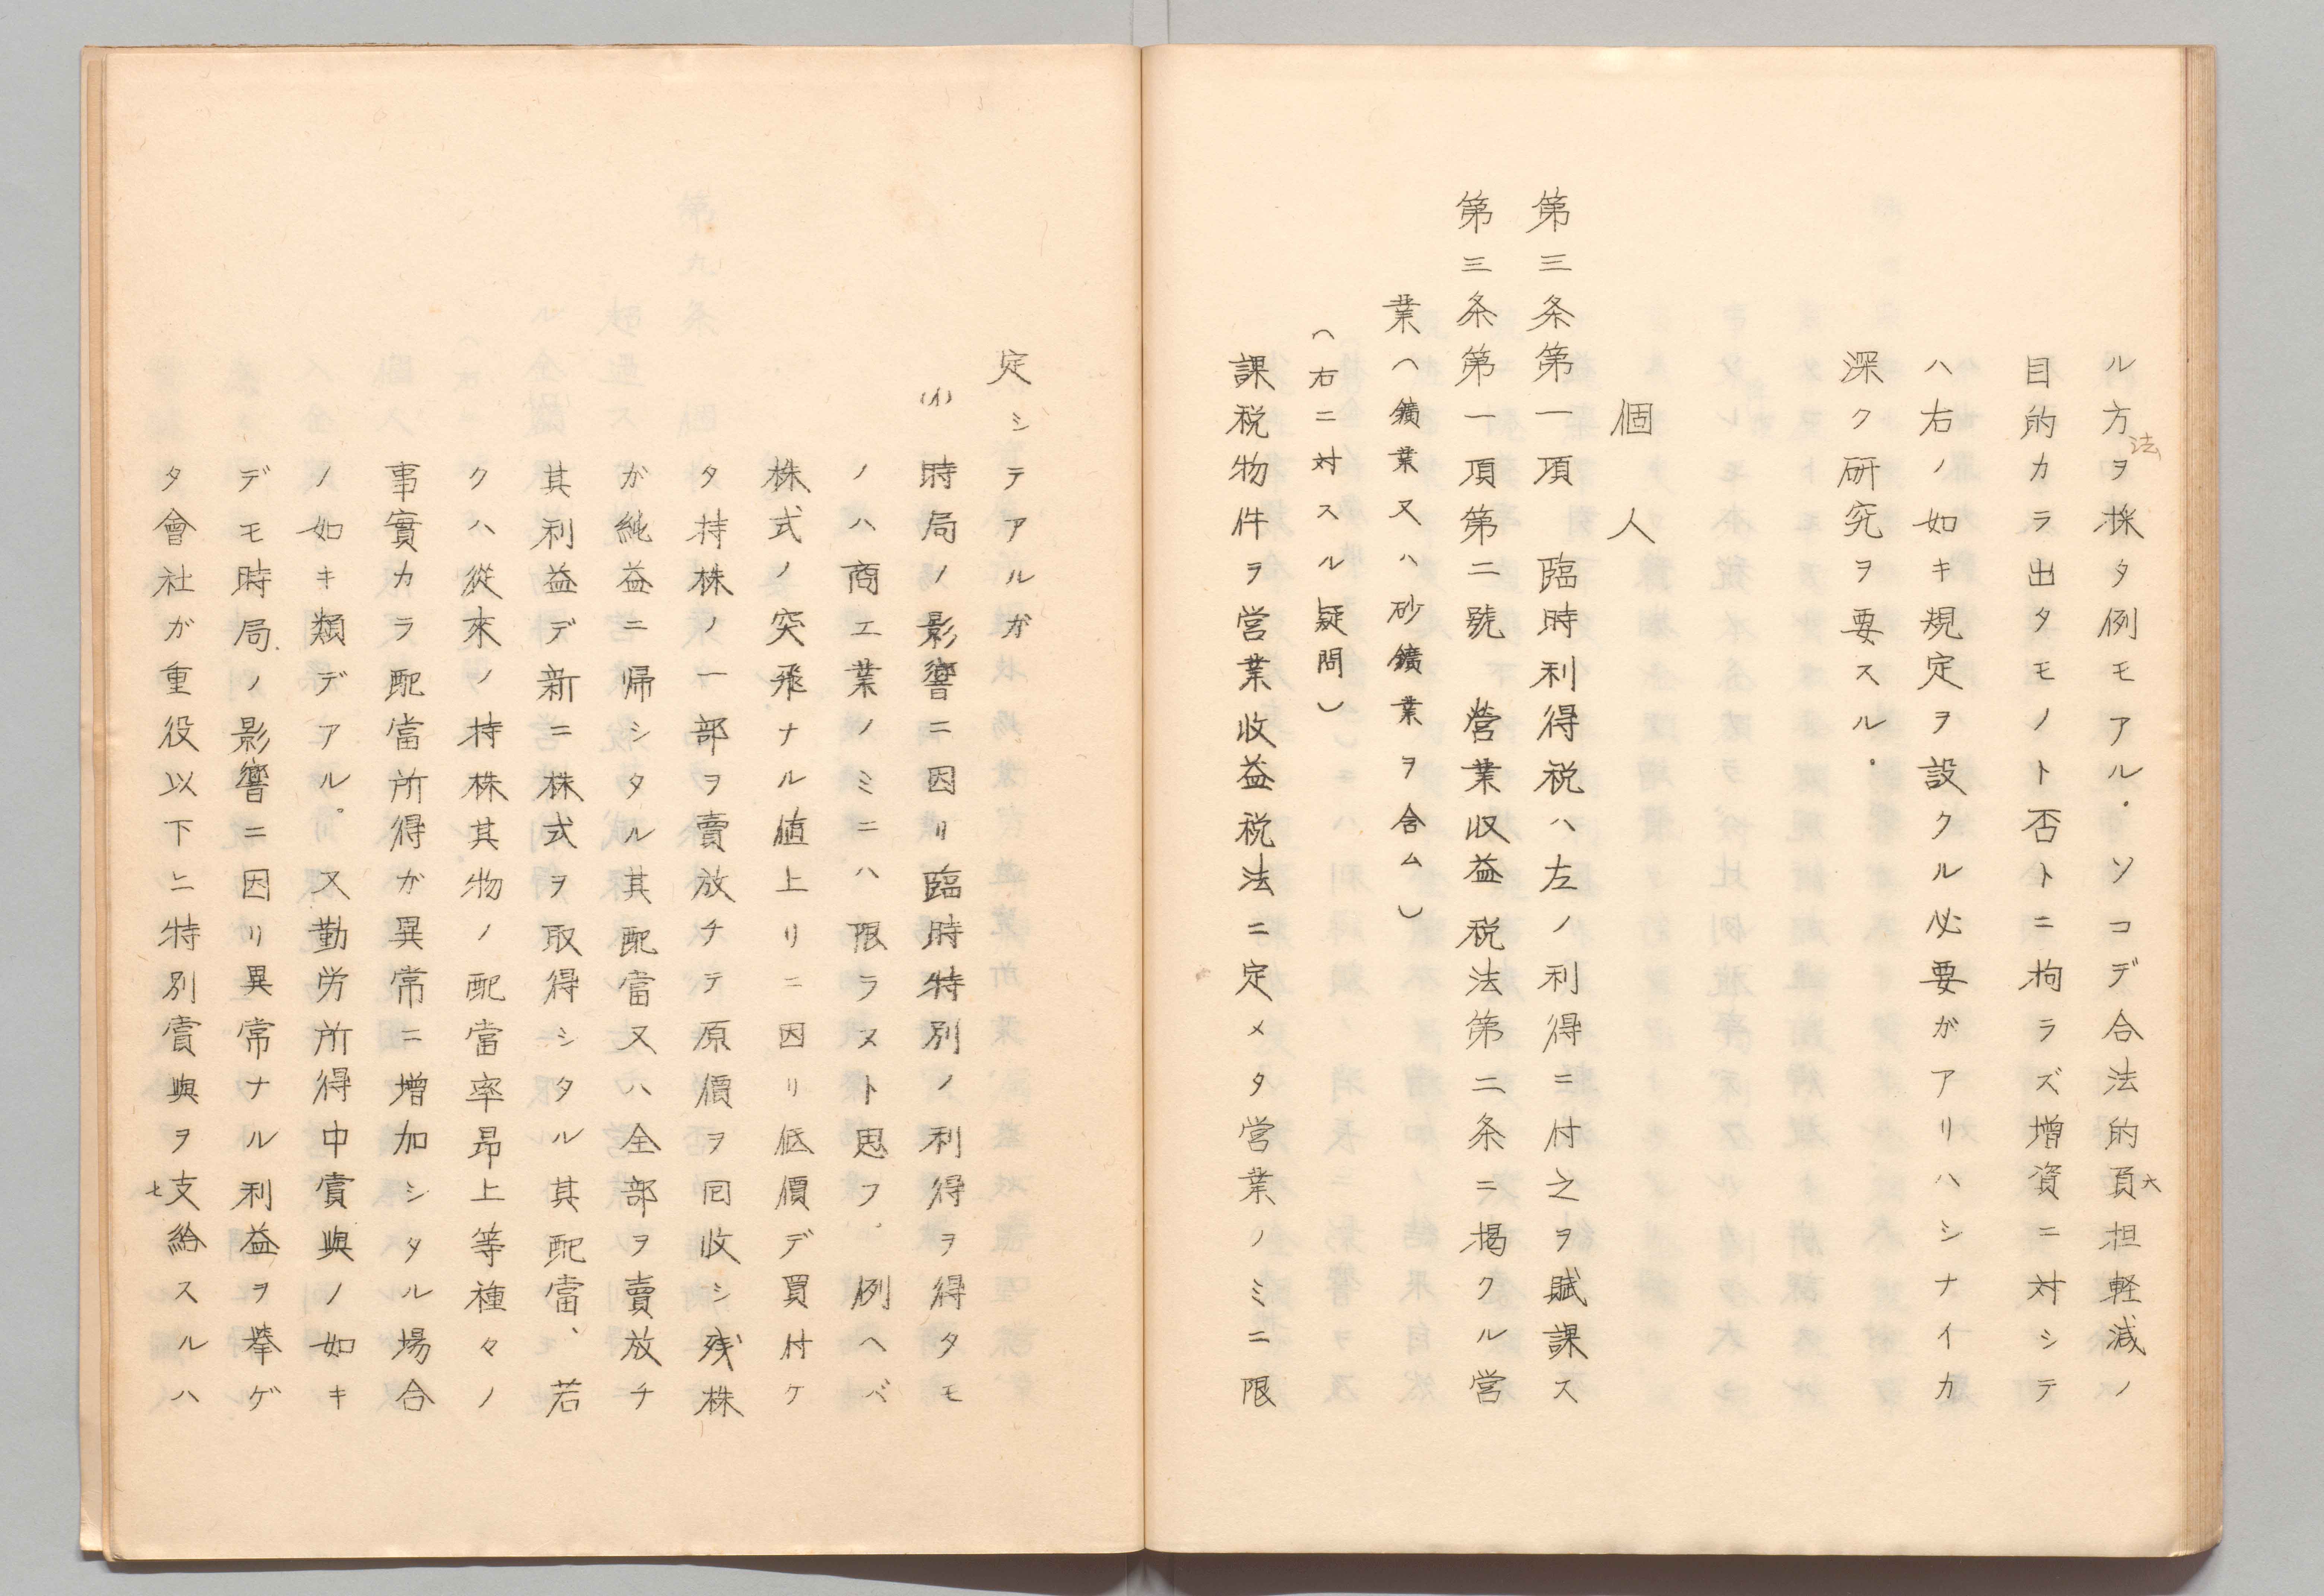 ル方法ヲ採タ例モアル．ソコデ合法的負担軽減ノ
目的カラ出タモノト否トニ拘ラズ増資ニ対シテ
ハ右ノ如キ規定ヲ設クル必要ガアリハシナイカ
深ク研究ヲ要スル．
個人
第三条第一項　臨時利得税ハ左ノ利得ニ付之ヲ賦課ス
第三条第一項第二號　營業収益税法第二条ニ掲クル営
業（鑛業又ハ砂鑛業ヲ含ム）
（右ニ対スル疑問）
課税物件ヲ営業收益税法ニ定メタ営業ノミニ限
六
定シテアルガ
(イ)
時局ノ影響ニ因リ臨時特別ノ利得ヲ得タモ
ノハ商工業ノミニハ限ラヌト思フ．例ヘバ
株式ノ突飛ナル値上リニ因リ低價デ買付ケ
タ持株ノ一部ヲ賣放チテ原價ヲ囘收シ残株
ガ純益ニ帰シタル其配當又ハ全部ヲ賣放チ
其利益デ新ニ株式ヲ取得シタル其配當、若
クハ從來ノ持株其物ノ配當率昂上等種々ノ
事實カラ配當所得ガ異常ニ増加シタル場合
ノ如キ類デアル。又勤労所得中賞與ノ如キ
デモ時局ノ影響ニ因リ異常ナル利益ヲ挙ゲ
タ會社ガ重役以下ニ特別賞與ヲ支給スルハ
七